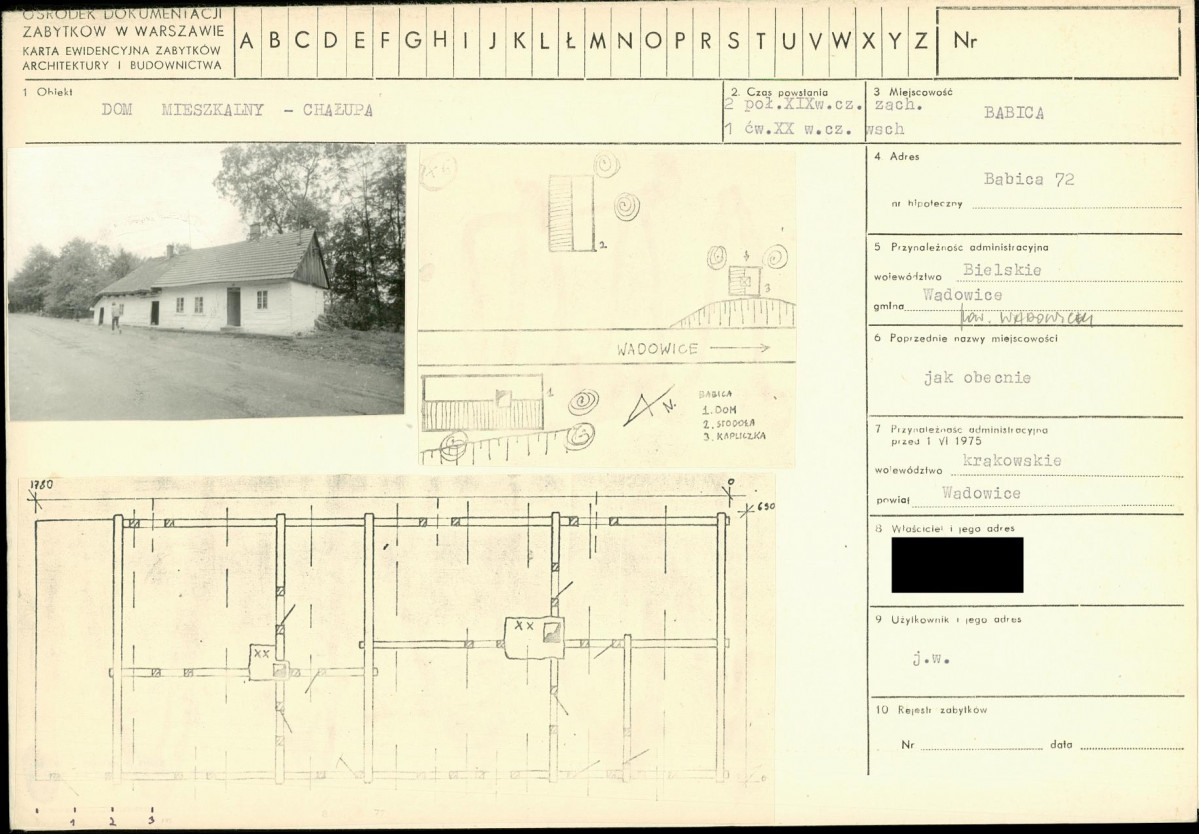 OŚRODEK DOKUMENTACJI
ZABYTKÓW W WARSZAWIE
KARTA EWIDENCYJNA ZABYTKÓW
ARCHITEKTURY I BUDOWNICTWA
A B C D E F G H I J K L Ł M N O P R S T U V W X Y Z Nr
1 Obiekt
DOM MIESZKALNY - CHAŁUPA
2. Czas powstania
2 poł.XIXw.cz. zach.
1 ćw.XX w.cz. wsch
3 Miejscowość
BABICA
4. Adres
Babica 72
nr hipoteczny
5 Przynależność administracyjna
województwo Bielskie
gmina Wadowice
pow. WADOWICKI
6 Poprzednie nazwy miejscowości
jak obecnie
7 Przynależność administracyjna
przed 1 VI 1975
województwo krakowskie
powiat Wadowice
8 Właściciel i jego adres
9 Użytkownik i jego adres
j.w.
10 Rejestr zabytków
Nr data
2
3
WADOWICE
1
N.
BABICA
1. DOM
2. STODOŁA
3. KAPLICZKA
1780
0
690
XX
XX
0
1 2 3